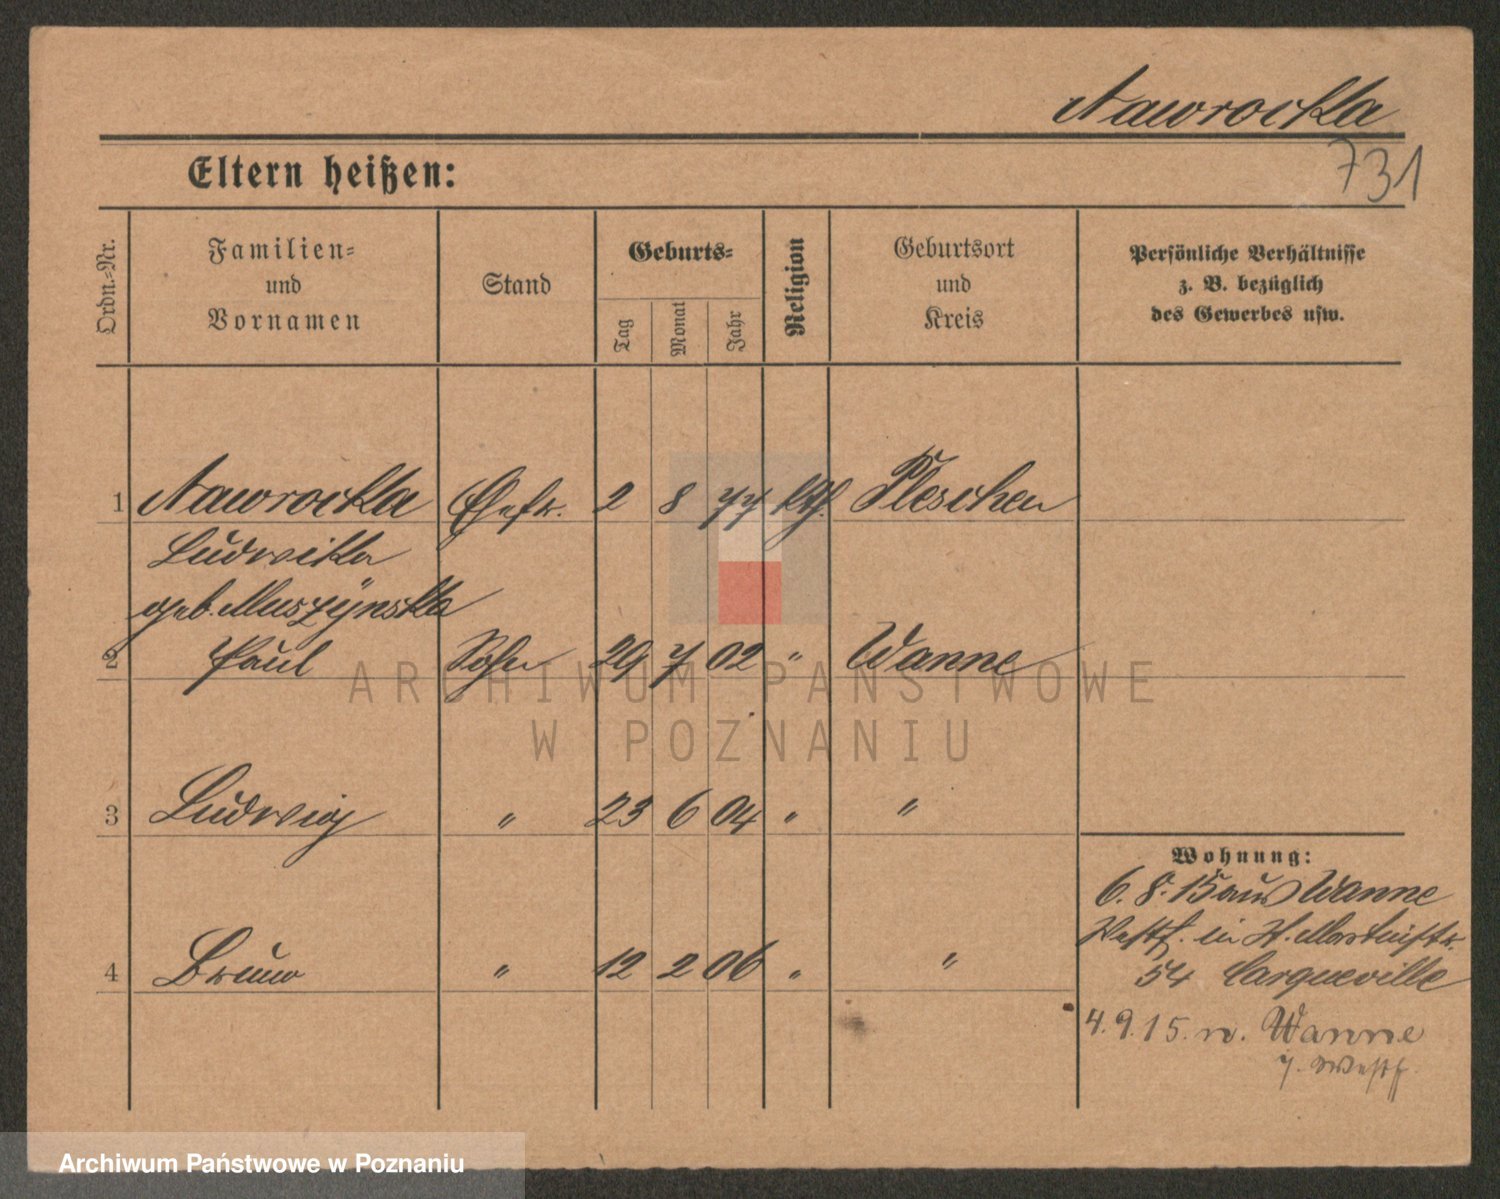 Nawrocka
731
Eltern heißen:
Ordn.-Nr.
Familien-
und
Vornamen
Stand
Geburts-
Tag
Monat
Jahr
Religion
Geburtsort
und
Kreis
Persönliche Verhältnisse
z. B. bezüglich
des Gewerbes usw.
1 Nawrocka Ehefr. 2 8 77 kth. Pleschen
Ludwika
geb. Muszÿnska
2 Paul Sohn 29 7 02 " Wanne
3 Ludwig " 23 6 04 " "
4 Bruno " 12 2 06 " "
Wohnung:
6. 8. 15 aus Wanne
Westf. in St. Martinstr.
54 Cargueville
4. 9. 15. n. Wanne
i. Westf.
ARCHIWUM PAŃSTWOWE
W POZNANIU
Archiwum Państwowe w Poznaniu